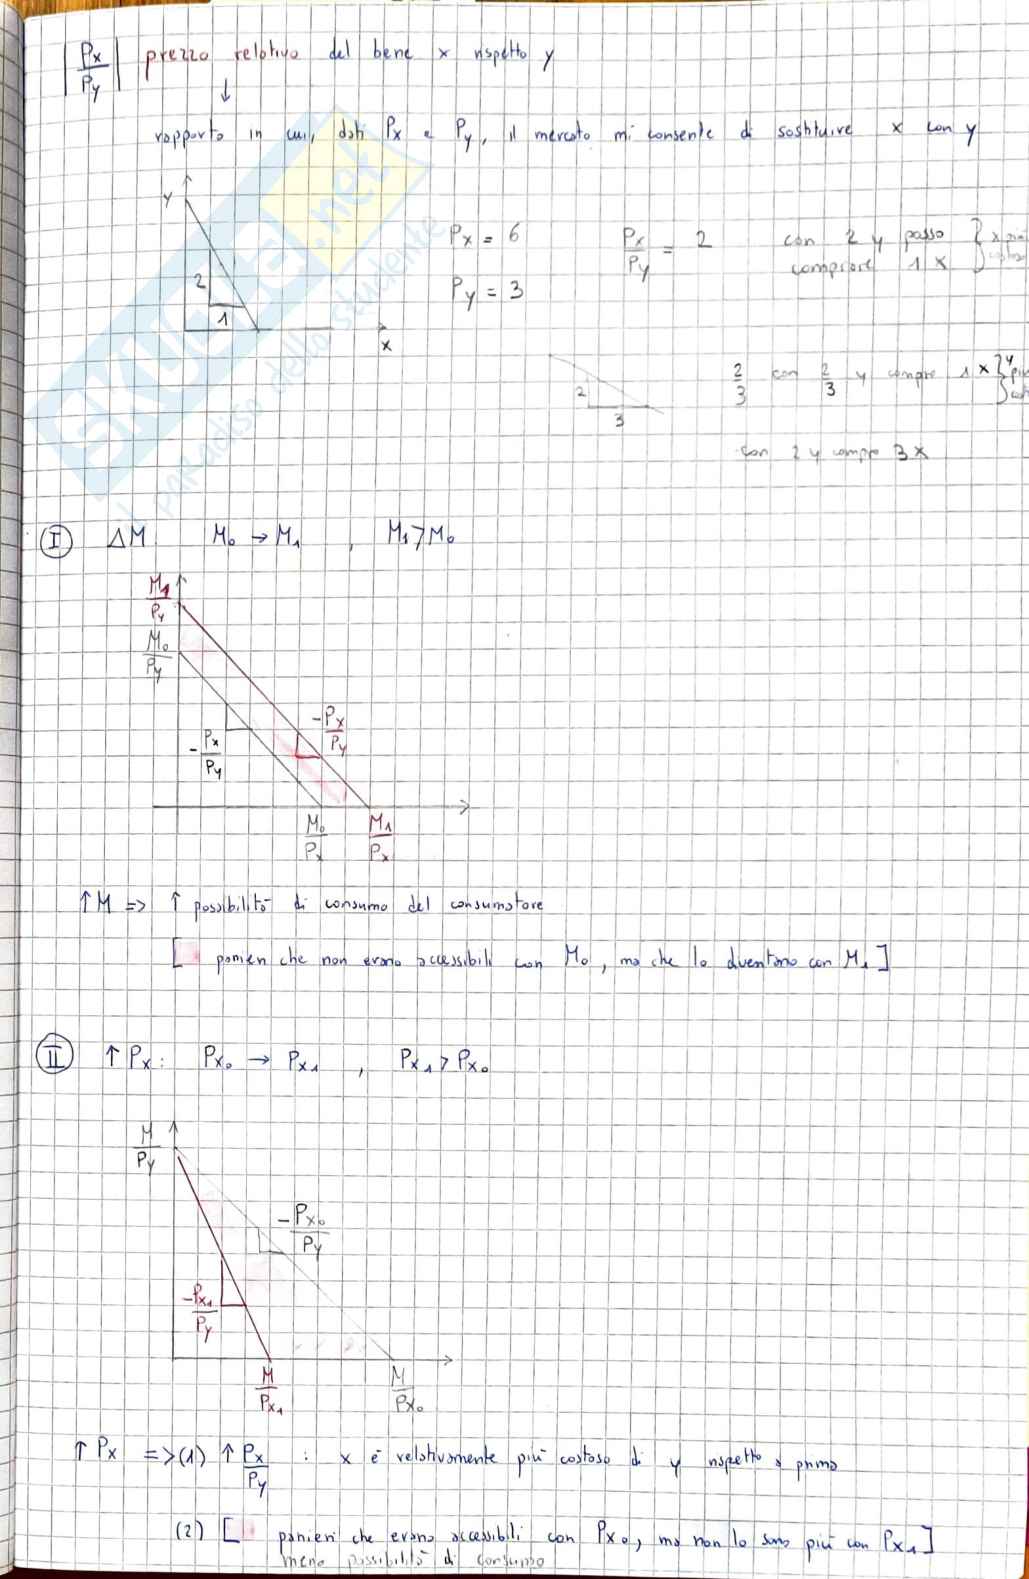 |Px/Py| prezzo relativo del bene x rispetto y
↓
rapporto in cui, dati Px e Py, il mercato mi consente di sostituire x con y
y
2
1
x
Px = 6
Py = 3
Px/Py = 2
con 2 y posso } x più
comprare 1 x } costoso
2
3
2/3 con 2/3 y compro 1 x } y
con 2 y compro 3 x
SKUOLA.net
il paradiso dello studente
I ΔM M₀ → M₁ , M₁ > M₀
M₁/Py
M₀/Py
-Px/Py
-Px/Py
M₀/Px
M₁/Px
↑M => ↑ possibilità di consumo del consumatore
[ panieri che non erano accessibili con M₀, ma che lo diventano con M₁ ]
II ↑ Px: Px₀ → Px₁ , Px₁ > Px₀
M/Py
-Px₀/Py
-Px₁/Py
M/Px₁
M/Px₀
↑ Px => (1) ↑ Px/Py : x è relativamente più costoso di y rispetto a prima
(2) [ panieri che erano accessibili con Px₀, ma non lo sono più con Px₁ ]
meno possibilità di consumo